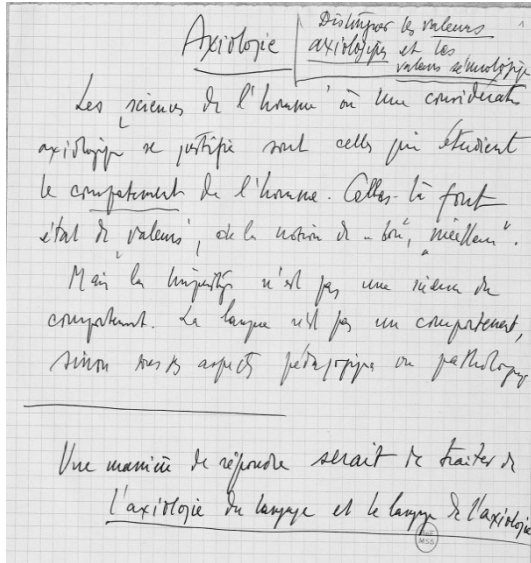 Axiologie
Distinguer les valeurs
axiologiques et les
valeurs sémiologiques
1
Les "sciences de l'homme" où une considération
axiologique se justifie sont celles qui étudient
le comportement de l'homme. Celles-là font
état de "valeurs", de la notion de "bon", "meilleur".
Mais la linguistique n'est pas une science du
comportement. La langue n'est pas un comportement,
sinon sous ses aspects pédagogique ou pathologique
Une manière de répondre serait de traiter de
l'axiologie du langage et le langage de l'axiologie
MSS